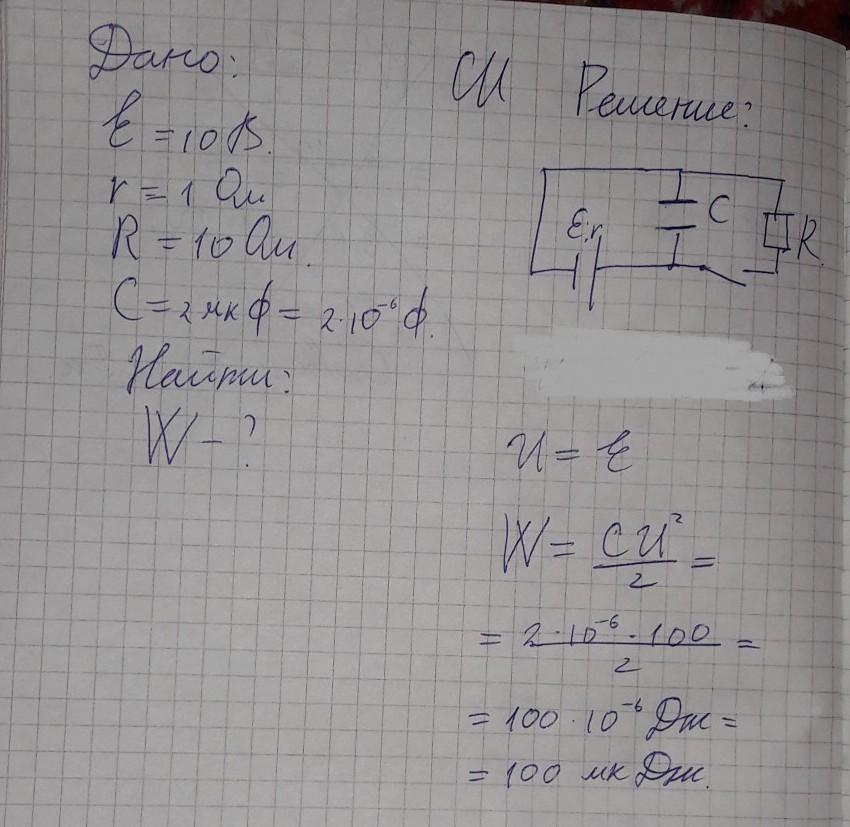 Дано:
ℰ = 10 В.
r = 1 Ом
R = 10 Ом.
C = 2 мкФ = 2·10⁻⁶ Ф.
Найти:
W - ?
СИ Решение:
ℰ,r
C
R
U = ℰ
W = CU²/2 =
= 2·10⁻⁶·100/2 =
= 100·10⁻⁶ Дж =
= 100 мкДж.